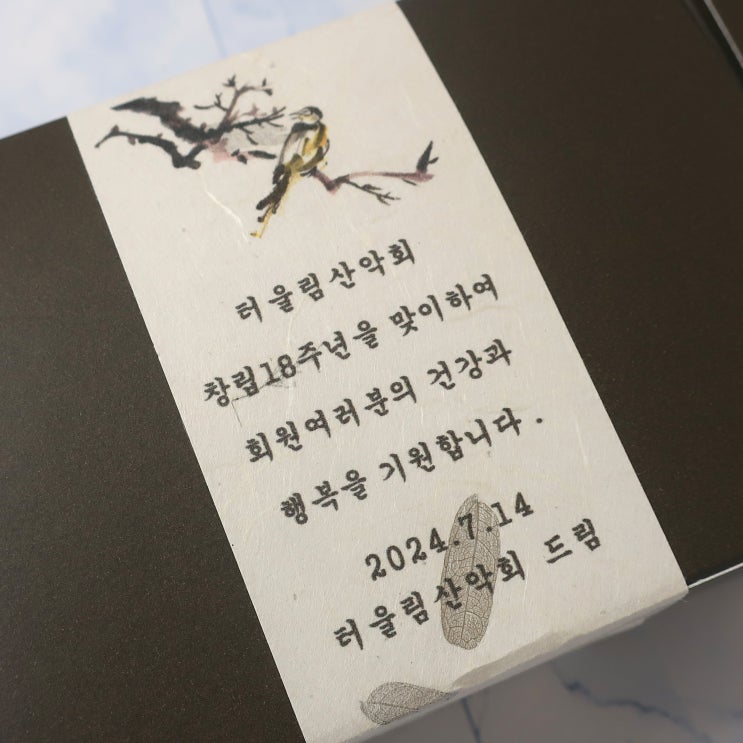 터울림산악회
창립18주년을 맞이하여
회원여러분의 건강과
행복을 기원합니다.
2024.7.14
터울림산악회 드림